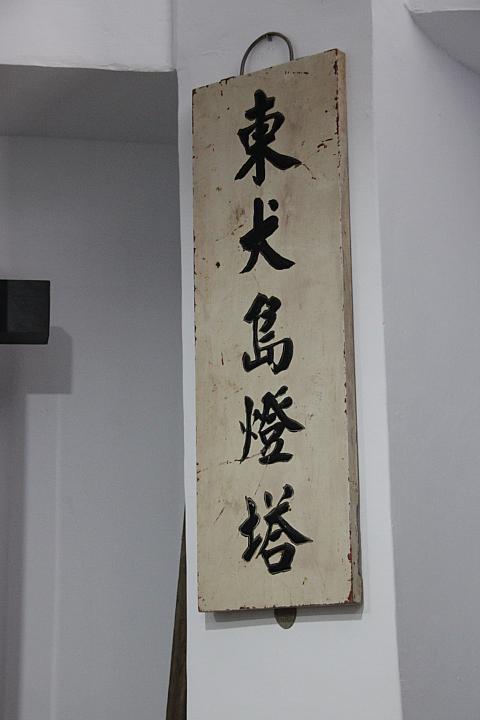 東犬島燈塔